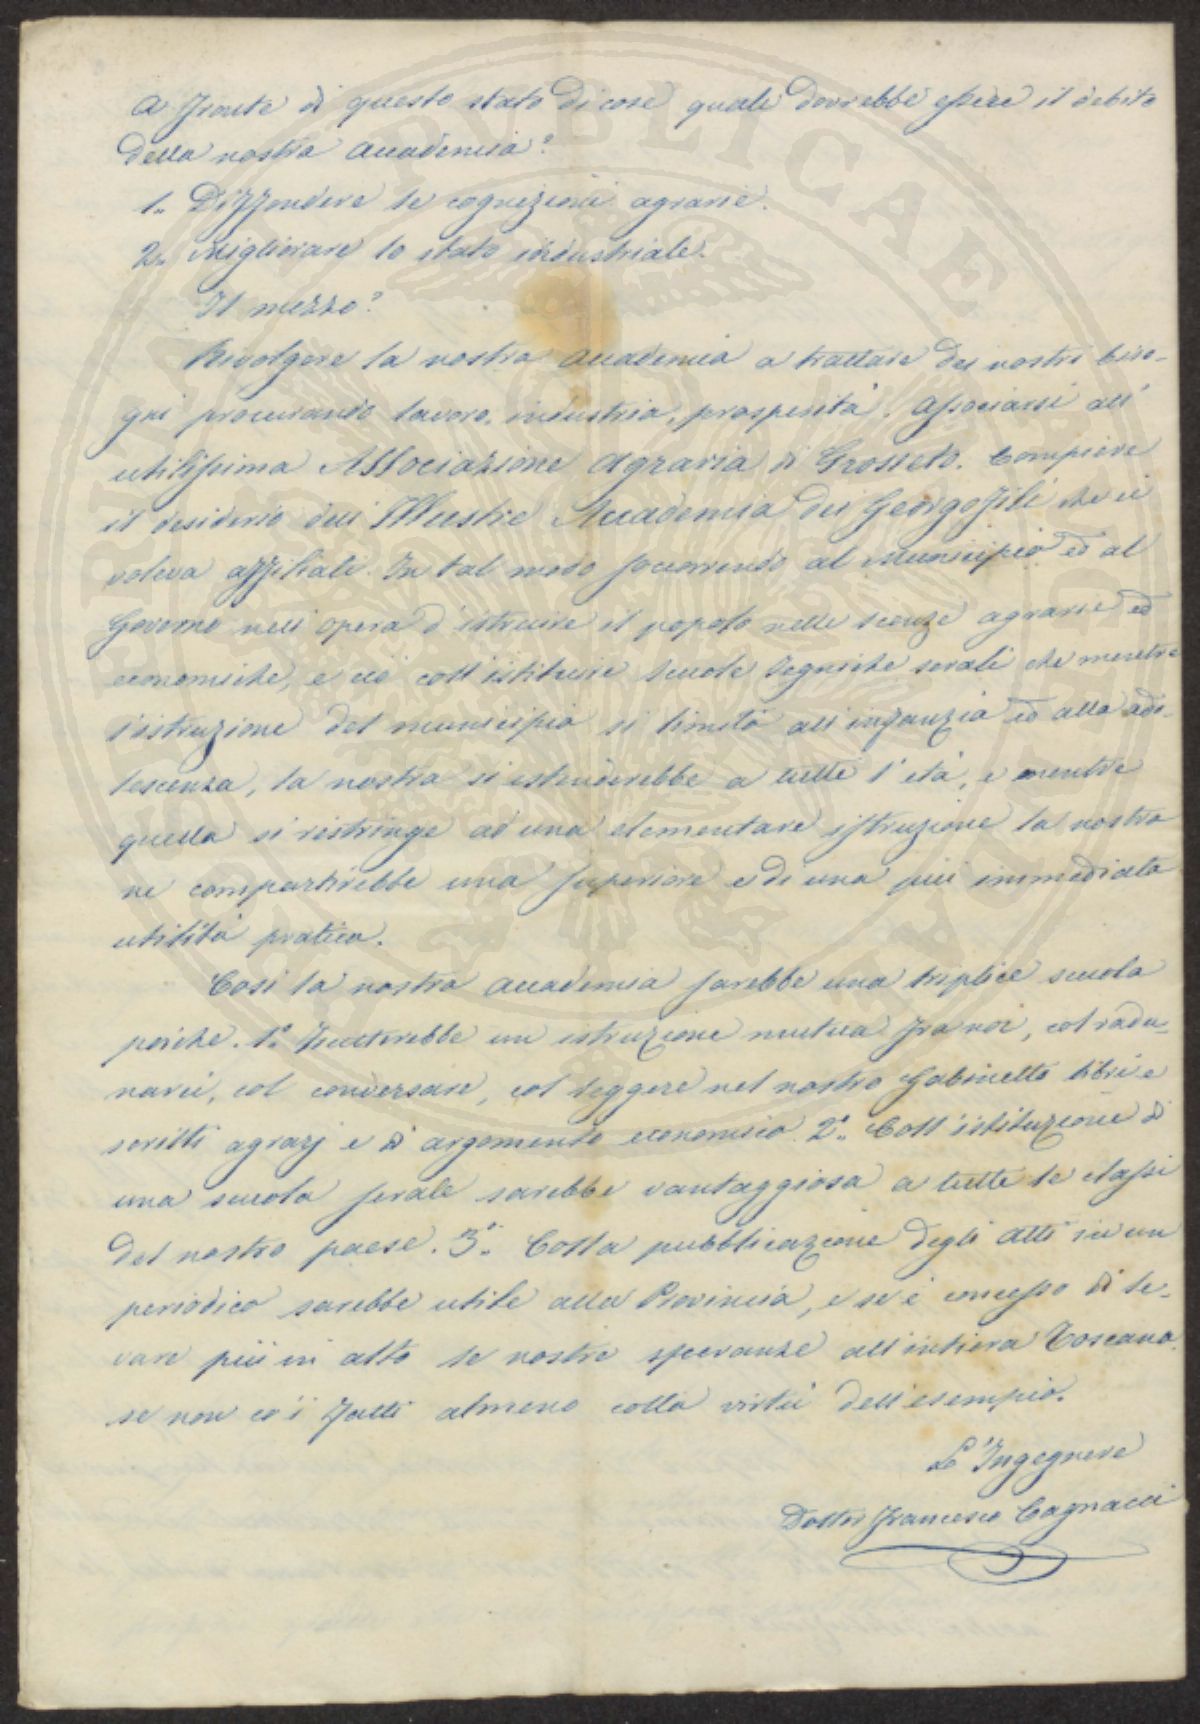 A fronte di questo stato di cose quale dovrebbe essere il debito
della nostra Accademia?
1.. Diffondere le cognizioni agrarie.
2.. Migliorare lo stato industriale.
Il mezzo?
Rivolgere la nostra Accademia a trattare dei nostri biso-
gni procurando lavoro, industria, prosperità. Associarsi all'
utilissima Associazione Agraria di Grosseto. Compiere
il desiderio dell'Illustre Accademia dei Georgofili che ci
voleva affiliati. In tal modo soccorrendo al Municipio ed al
Governo nell'opera d'istruire il popolo nelle scienze agrarie ed
economiche, e ciò coll'istituire scuole tecniche serali che mentre
l'istruzione del municipio si limita all'infanzia ed alla ado-
lescenza, la nostra si estenderebbe a tutte l'età, e mentre
quella si ristringe ad una elementare istruzione la nostra
ne compartirebbe una superiore e di una più immediata
utilità pratica.
Così la nostra Accademia sarebbe una triplice scuola
poiche. 1.º un istruzione mutua fra noi, col radu-
narci, col conversare, col leggere nel nostro Gabinetto libri e
scritti agrarj e di argomento economico. 2º.. Coll'istituzione di
una scuola serale sarebbe vantaggiosa a tutte le classi
del nostro paese. 3º.. Colla pubblicazione degli Atti in un
periodico sarebbe utile alla Provincia, e se è concesso di le-
vare più in alto le nostre speranze all'intiera Toscana,
se non co'i fatti almeno colla virtù dell'esempio.
L'Ingegnere
Dottor Francesco Cagnacci
SIGNA PUBLICAE